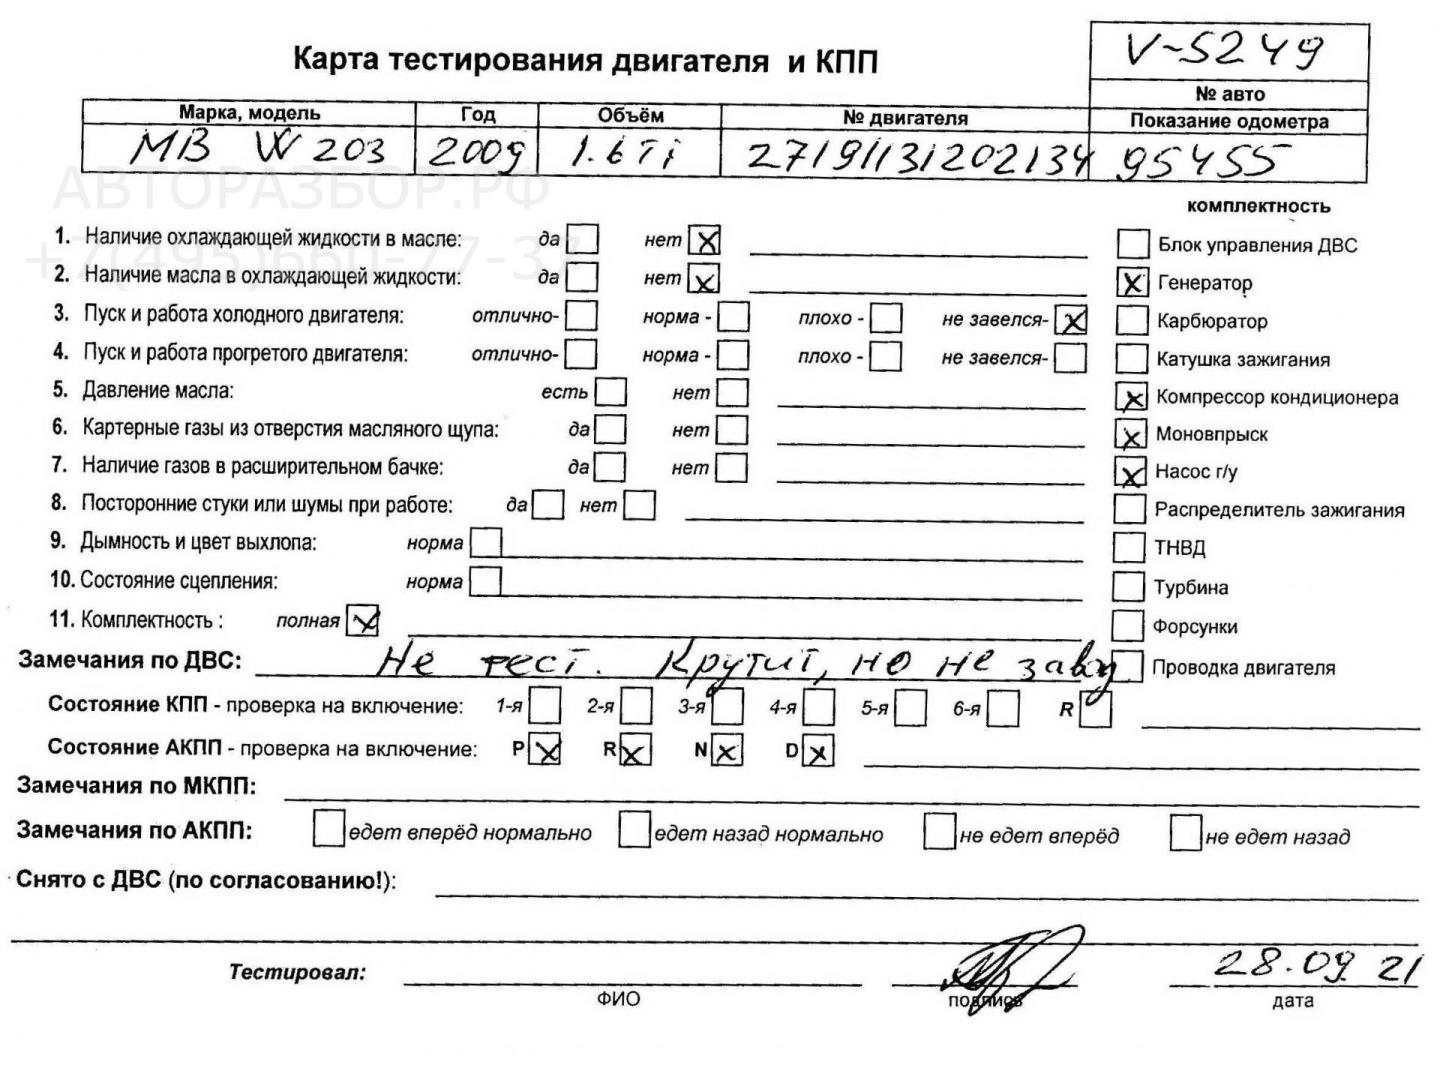 V-5249
Карта тестирования двигателя и КПП
№ авто
Марка, модель Год Объём № двигателя Показание одометра
MB W 203 2009 1.6 Ti 27191131202134 95455
АВТОРАЗБОР.РФ
+7(495)660-77-37
комплектность
1. Наличие охлаждающей жидкости в масле: да нет X Блок управления ДВС
2. Наличие масла в охлаждающей жидкости: да нет X X Генератор
3. Пуск и работа холодного двигателя: отлично- норма - плохо - не завелся- X Карбюратор
4. Пуск и работа прогретого двигателя: отлично- норма - плохо - не завелся- Катушка зажигания
5. Давление масла: есть нет X Компрессор кондиционера
6. Картерные газы из отверстия масляного щупа: да нет X Моновпрыск
7. Наличие газов в расширительном бачке: да нет X Насос г/у
8. Посторонние стуки или шумы при работе: да нет Распределитель зажигания
9. Дымность и цвет выхлопа: норма ТНВД
10. Состояние сцепления: норма Турбина
11. Комплектность : полная X Форсунки
Замечания по ДВС: Не тест. Крутит, но не завод Проводка двигателя
Состояние КПП - проверка на включение: 1-я 2-я 3-я 4-я 5-я 6-я R
Состояние АКПП - проверка на включение: P X R X N X D X
Замечания по МКПП:
Замечания по АКПП: едет вперёд нормально едет назад нормально не едет вперёд не едет назад
Снято с ДВС (по согласованию!):
Тестировал: 28.09 21
ФИО подпись дата